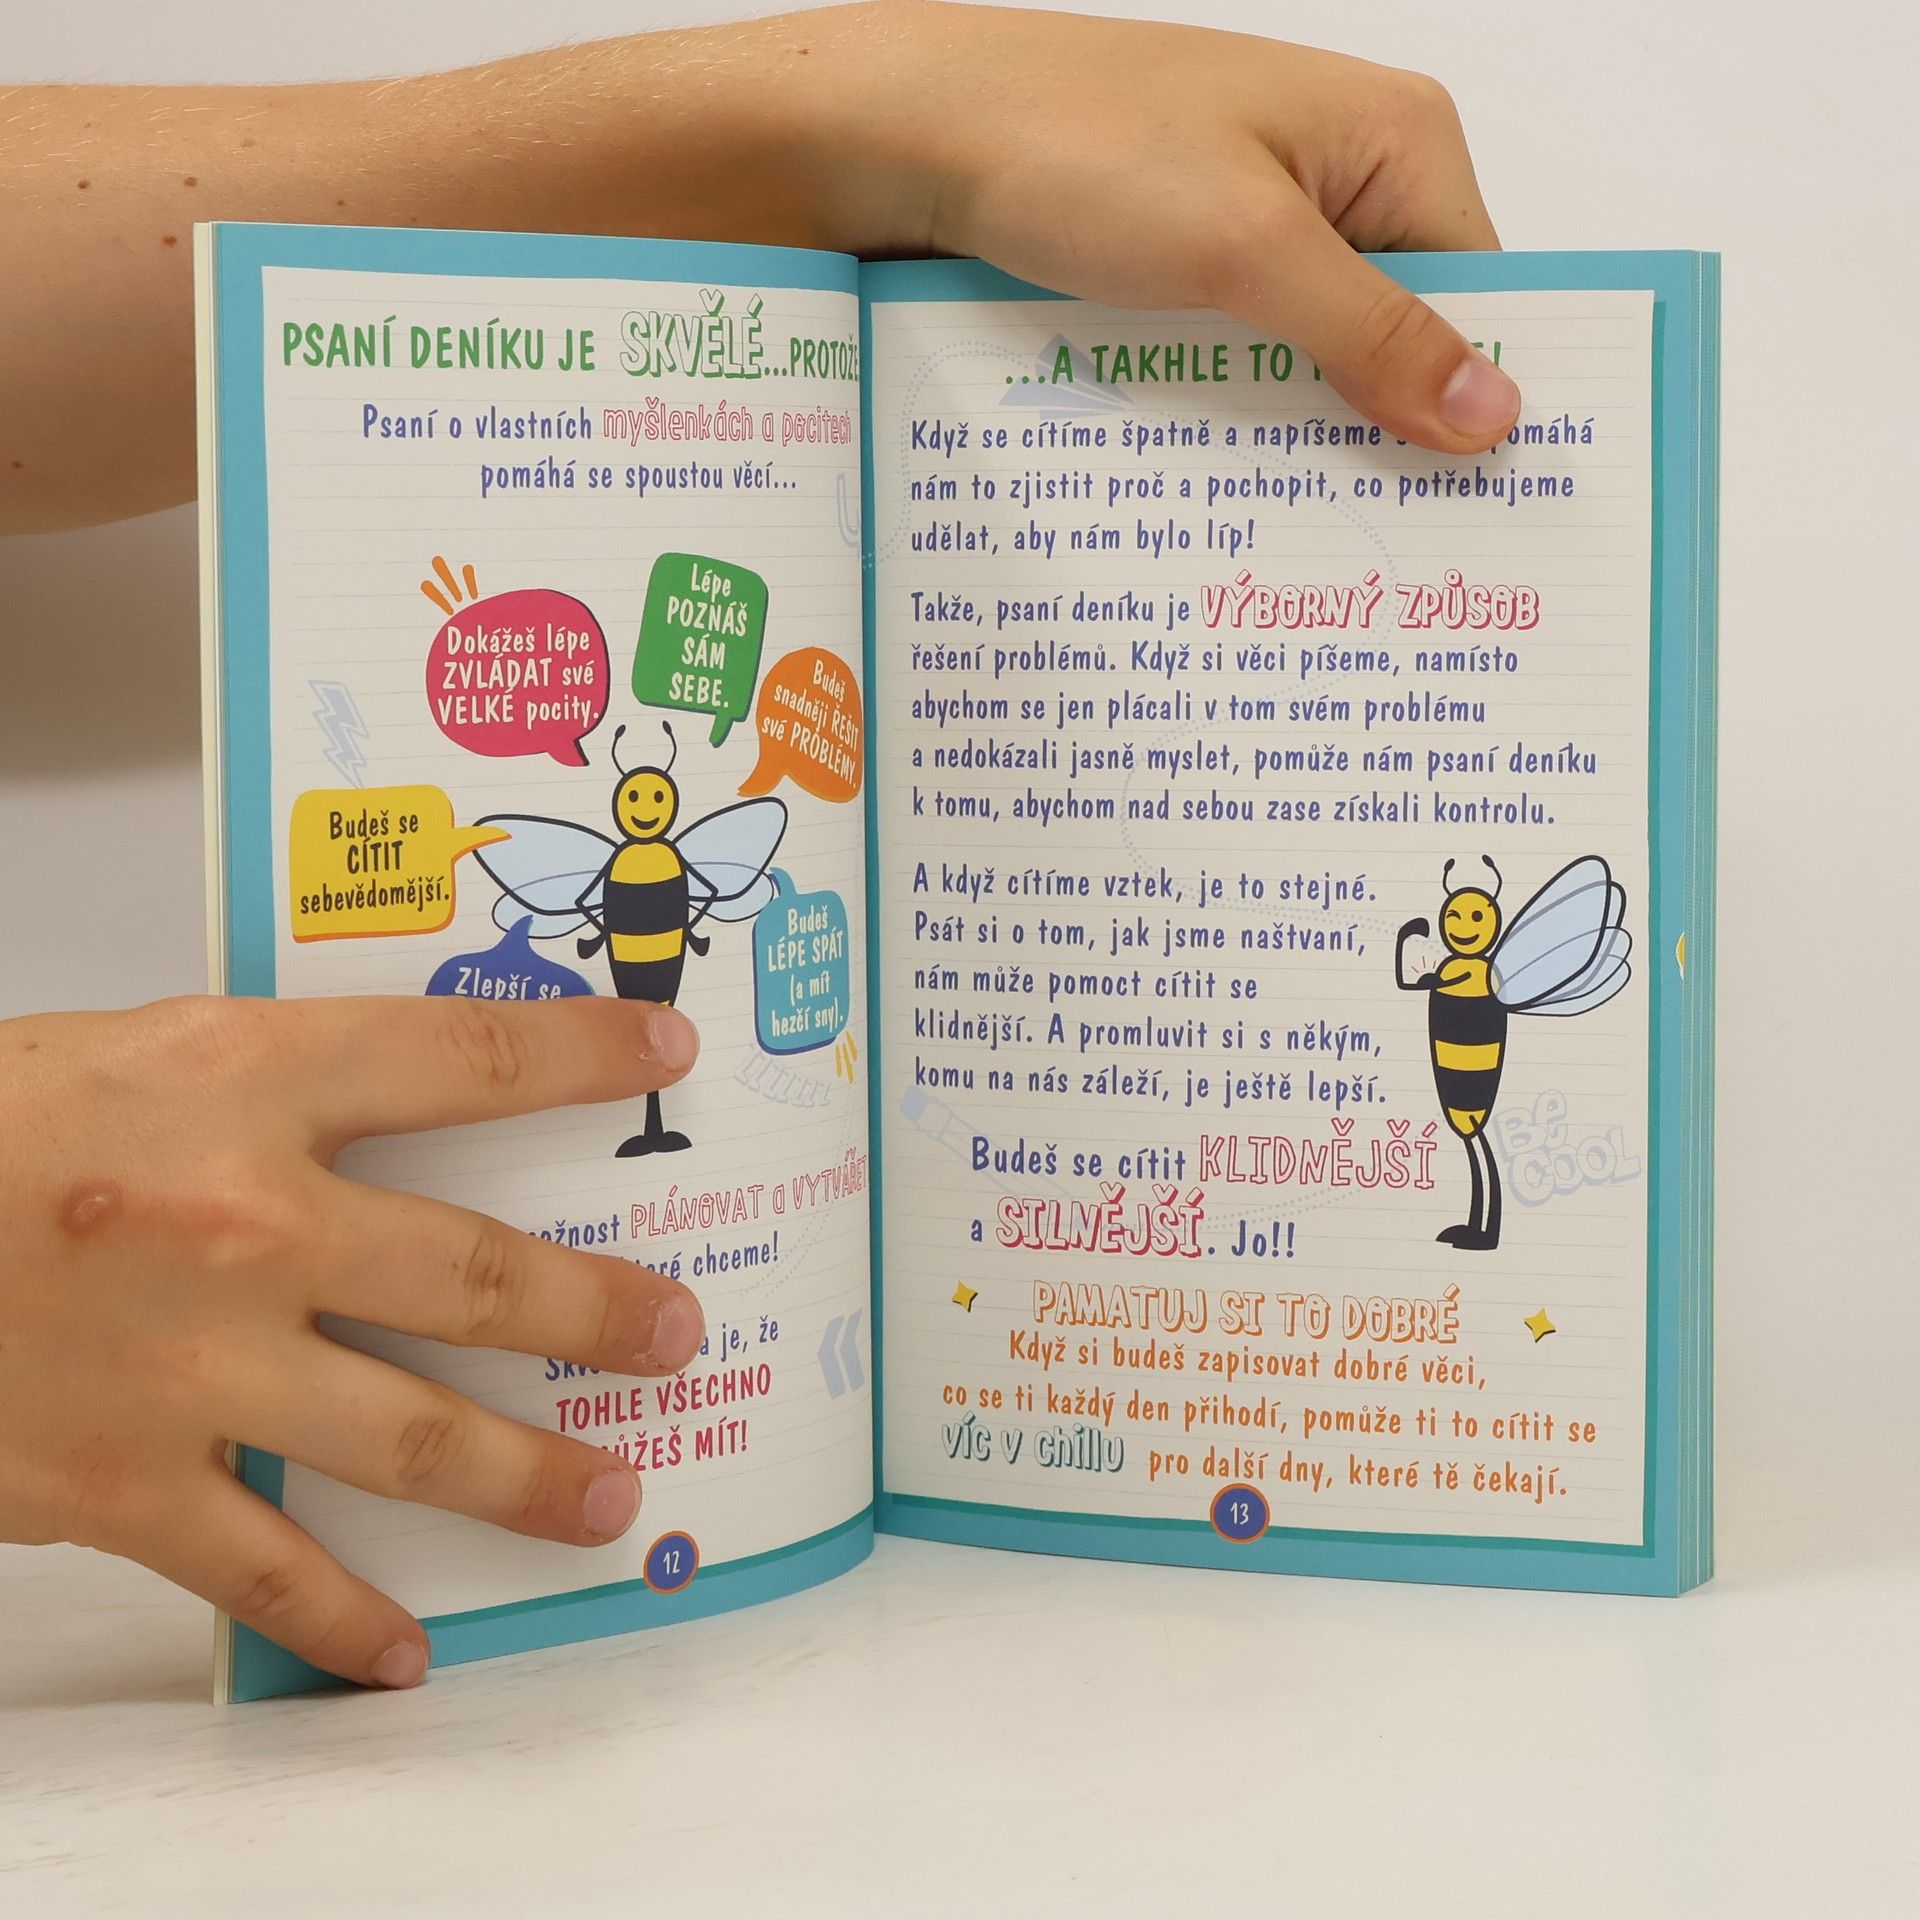 PSANÍ DENÍKU JE SKVĚLÉ...PROTOŽE
Psaní o vlastních myšlenkách a pocitech
pomáhá se spoustou věcí...
Dokážeš lépe
ZVLÁDAT své
VELKÉ pocity.
Lépe
POZNÁŠ
SÁM
SEBE.
Budeš
snadněji ŘEŠIT
své PROBLÉMY.
Budeš se
CÍTIT
sebevědomější.
Zlepší se
Budeš
LÉPE SPÁT
(a mít
hezčí sny).
PLÁNOVAT a VYTVÁŘET
chceme!
je, že
TOHLE VŠECHNO
MÍT!
12
...A TAKHLE TO
Když se cítíme špatně a napíšeme
nám to zjistit proč a pochopit, co potřebujeme
udělat, aby nám bylo líp!
Takže, psaní deníku je VÝBORNÝ ZPŮSOB
řešení problémů. Když si věci píšeme, namísto
abychom se jen plácali v tom svém problému
a nedokázali jasně myslet, pomůže nám psaní deníku
k tomu, abychom nad sebou zase získali kontrolu.
A když cítíme vztek, je to stejné.
Psát si o tom, jak jsme naštvaní,
nám může pomoct cítit se
klidnější. A promluvit si s někým,
komu na nás záleží, je ještě lepší.
Budeš se cítit KLIDNĚJŠÍ
a SILNĚJŠÍ. Jo!!
Be
COOL
PAMATUJ SI TO DOBRÉ
Když si budeš zapisovat dobré věci,
co se ti každý den přihodí, pomůže ti to cítit se
víc v chillu pro další dny, které tě čekají.
13